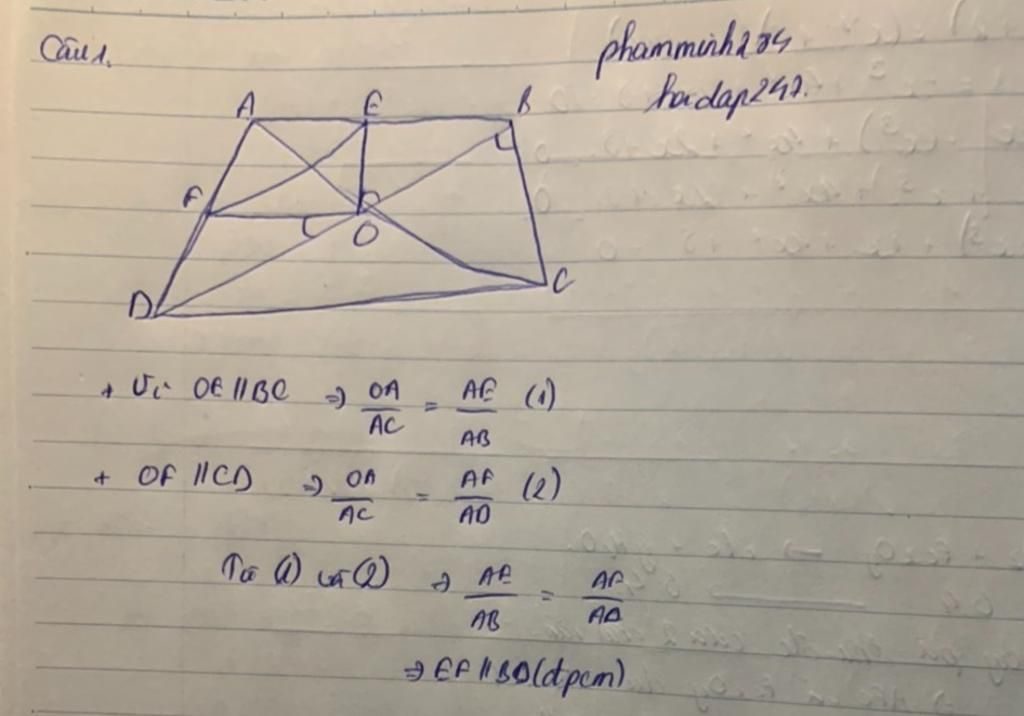 Câu 1.
phamminh234
hoidap247.
A E B
F
O
D C
+ Vì OE // BC ⇒ OA/AC = AE/AB (1)
+ OF // CD ⇒ OA/AC = AF/AD (2)
Từ (1) và (2) ⇒ AE/AB = AF/AD
⇒ EF // BD (đpcm)